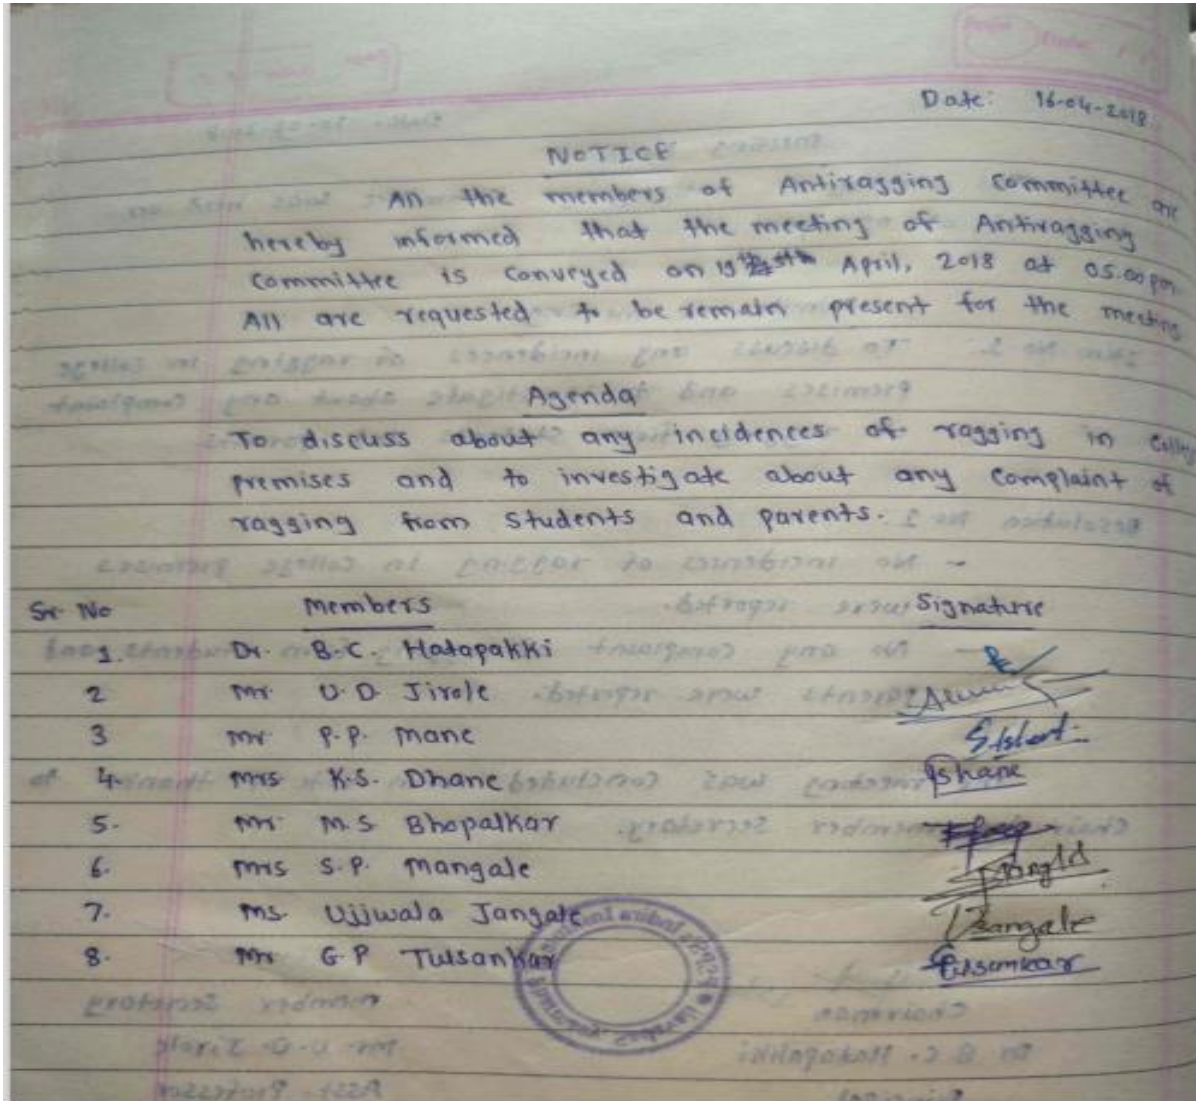 Date: 16-04-2018
NOTICE
All the members of Antiragging Committee are
hereby informed that the meeting of Antiragging
Committee is Conveyed on 19th April, 2018 at 05.00 pm
All are requested to be remain present for the meeting
Agenda
To discuss about any incidences of ragging in College
premises and to investigate about any Complaint of
ragging from students and parents.
Sr. No Members Signature
1. Dr. B.C. Hatapakki
2 Mr. U.D. Jirole
3 Mr P.P. Mane
4. Mrs K.S. Dhane Dhane
5. Mr. M.S Bhopalkar
6. Mrs S.P. Mangale
7. Ms. Ujjwala Jangale Jangale
8. Mr G.P Tulsankar Tulsankar